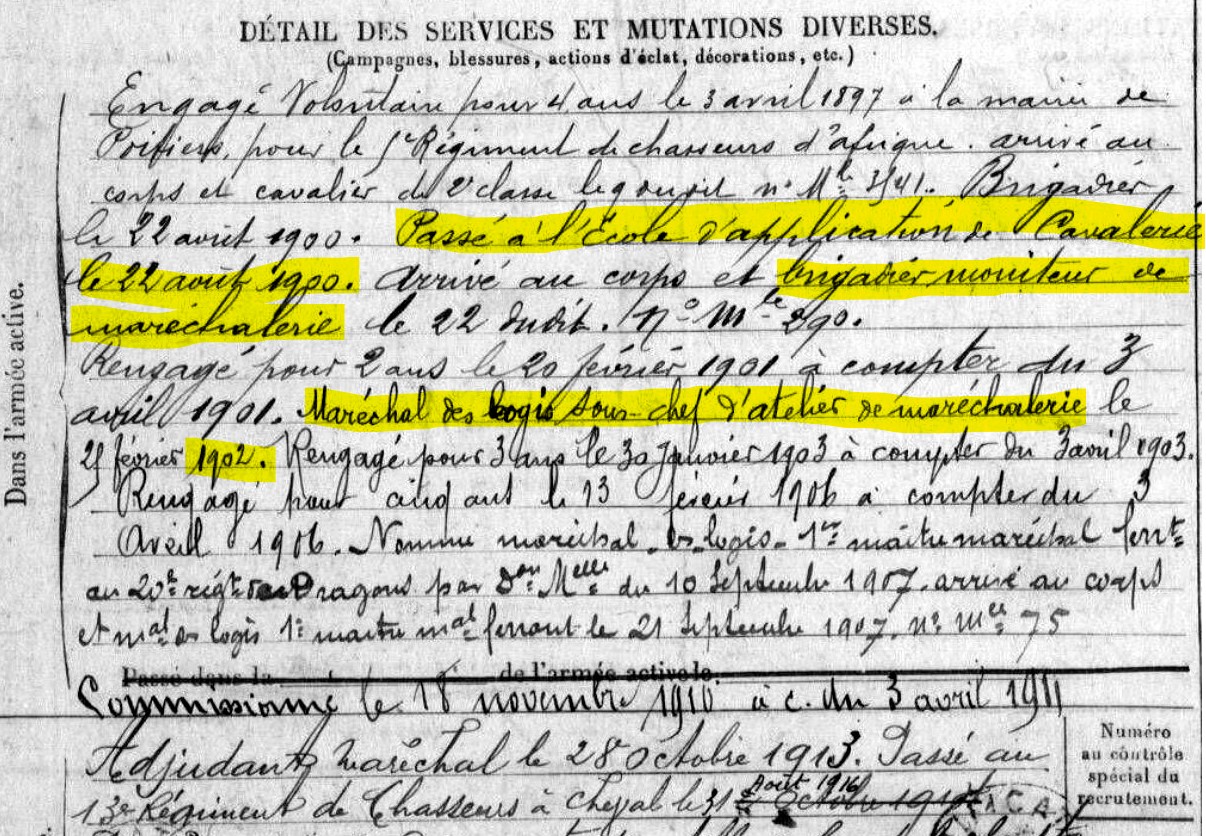 DÉTAIL DES SERVICES ET MUTATIONS DIVERSES.
(Campagnes, blessures, actions d'éclat, décorations, etc.)
Engagé Volontaire pour 4 ans le 3 avril 1897 à la mairie de
Poitiers, pour le 5e Régiment de chasseurs d'afrique. arrivé au
corps et cavalier de 2e classe le 9 dudit n° Mle 3141. Brigadier
le 22 août 1900. Passé à l'École d'application de Cavalerie
le 22 août 1900. arrivé au corps et brigadier moniteur de
maréchalerie le 22 dudit. No Mle 290.
Rengagé pour 2 ans le 20 février 1901 à compter du 3
avril 1901. Maréchal des logis sous-chef d'atelier de maréchalerie le
février 1902. Rengagé pour 3 ans le 30 Janvier 1903 à compter du 3 avril 1903.
Rengagé pour cinq ans le 13 février 1906 à compter du 3
Avril 1906. Nommé maréchal-des-logis-1er maître maréchal ferrt
au 20e régt de Dragons par Don Melle du 10 Septembre 1907. arrivé au corps
et mal des logis 1er maître mal ferrant le 21 Septembre 1907. no mle 75
Passé dans la de l'armée active le
Commissionné le 18 novembre 1910 à c. du 3 avril 1911
Adjudant maréchal le 28 Octobre 1913. Passé au
13e Régiment de Chasseurs à Cheval le 31 Août 1916
Dans l'armée active.
Numéro
au contrôle
spécial du
recrutement.